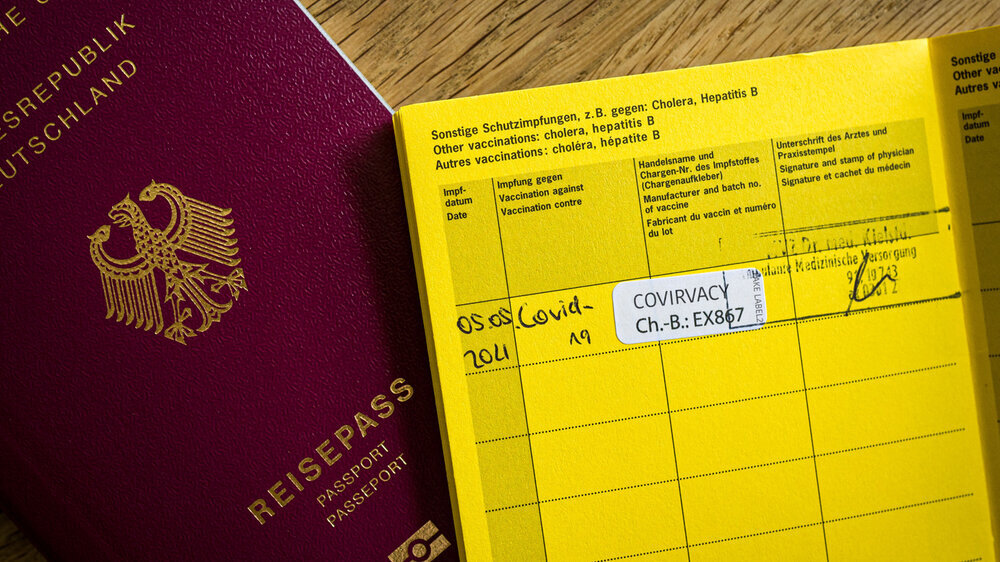 ESREPUBLIK
EUTSCHLAND
REISEPASS
PASSPORT
PASSEPORT
Sonstige Schutzimpfungen, z.B. gegen: Cholera, Hepatitis B
Other vaccinations: cholera, hepatitis B
Autres vaccinations: choléra, hépatite B
Impf-
datum
Date
Impfung gegen
Vaccination against
Vaccination contre
Handelsname und
Chargen-Nr. des Impfstoffes
(Chargenaufkleber)
Manufacturer and batch no.
of vaccine
Fabricant du vaccin et numéro
du lot
Unterschrift des Arztes und
Praxisstempel
Signature and stamp of physician
Signature et cachet du médecin
05.05.
2021
Covid-
19
COVIRVACY
Ch.-B.: EX867
Dr. med.
Medizinische Versorgung
Sonstige
Other va
Autres va
Impf-
datum
Date